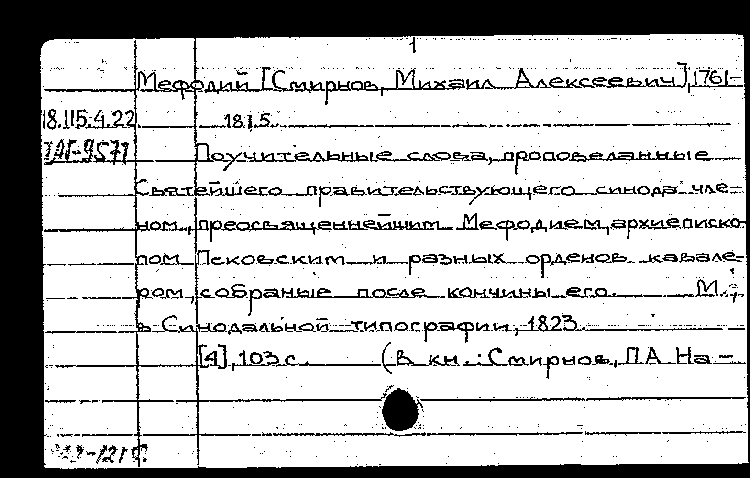 1
Мефодий [Смирнов, Михаил Алексеевич], 1761-
18.115.4.22 1815.
Поучительные слова, проповеданные
Святейшего правительствующего синода чле-
ном, преосвященнейшим Мефодием, архиеписко-
пом Псковским и разных орденов кавале-
ром, собраные после кончины его. М.:
в Синодальной типографии, 1823.
[4], 103 с. (В кн.: Смирнов, П.А На-